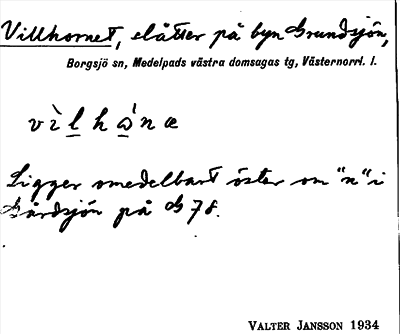 Villhornet, slåtter på byn Grundsjön,
Borgsjö sn, Medelpads västra domsagas tg, Västernorrl. l.
vìlhώ̣næ
Ligger omedelbart öster om "n" i
Gårdsjön på G 78.
VALTER JANSSON 1934